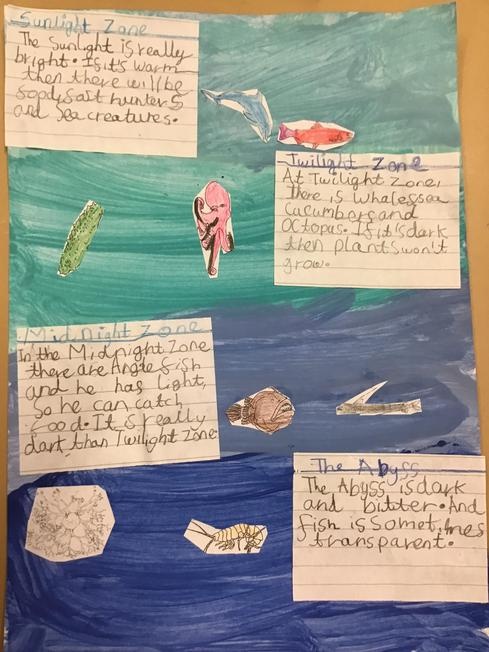 Sunlight Zone
The Sunlight is really
bright. If it's warm
then there will be
food, salt hunters
and Sea creatures.
Twilight Zone
At Twilight Zone,
There is whales sea
Cucumbers and
Octopus. If it's dark
then plants won't
grow.
Midnight Zone
In the Midnight Zone
there are Angle fish
and he has light,
So he can catch
Food. It is really
dart than Twilight Zone
The Abyss
The Abyss is dark
and bitter. And
fish is Sometimes
transparent.